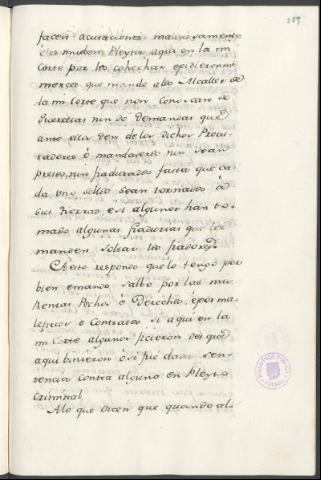 189
facen acusaciones maliciosamente
e les mueben Pleytos aqui en la mi
Corte por los cohechar epidieronme
merced que mande alos Alcalles de
la mi Corte que non conoscan de
querellas nin de Demandas que
ante ellos den delos dichos Procu-
radores ó mandaderos nin sean
presos, nin fiadurados fasta que ca-
da uno dellos sean tornados á
sus tierras, e si algunos han to-
mado algunas fiadurias que les
manden soltar los fiadores
A esto respondo que lo tengo por
bien emando, salbo por las mis
Rentas Pechos é Derechos, é por ma-
leficios o Contratos si aqui en la
mi Corte algunos ficieron desque
aqui binieron ó si fué dada sen-
tencia contra alguno en Pleyto
Criminal.
A lo que dicen que quando al-